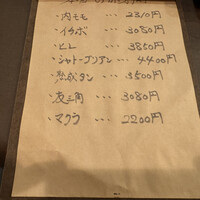 ・内モモ ... 2310円
・イチボ ... 3080円
・ヒレ ... 3850円
・シャトーブリアン ... 4400円
・ ... 3500円
・友三角 ... 3080円
・マクラ ... 2200円